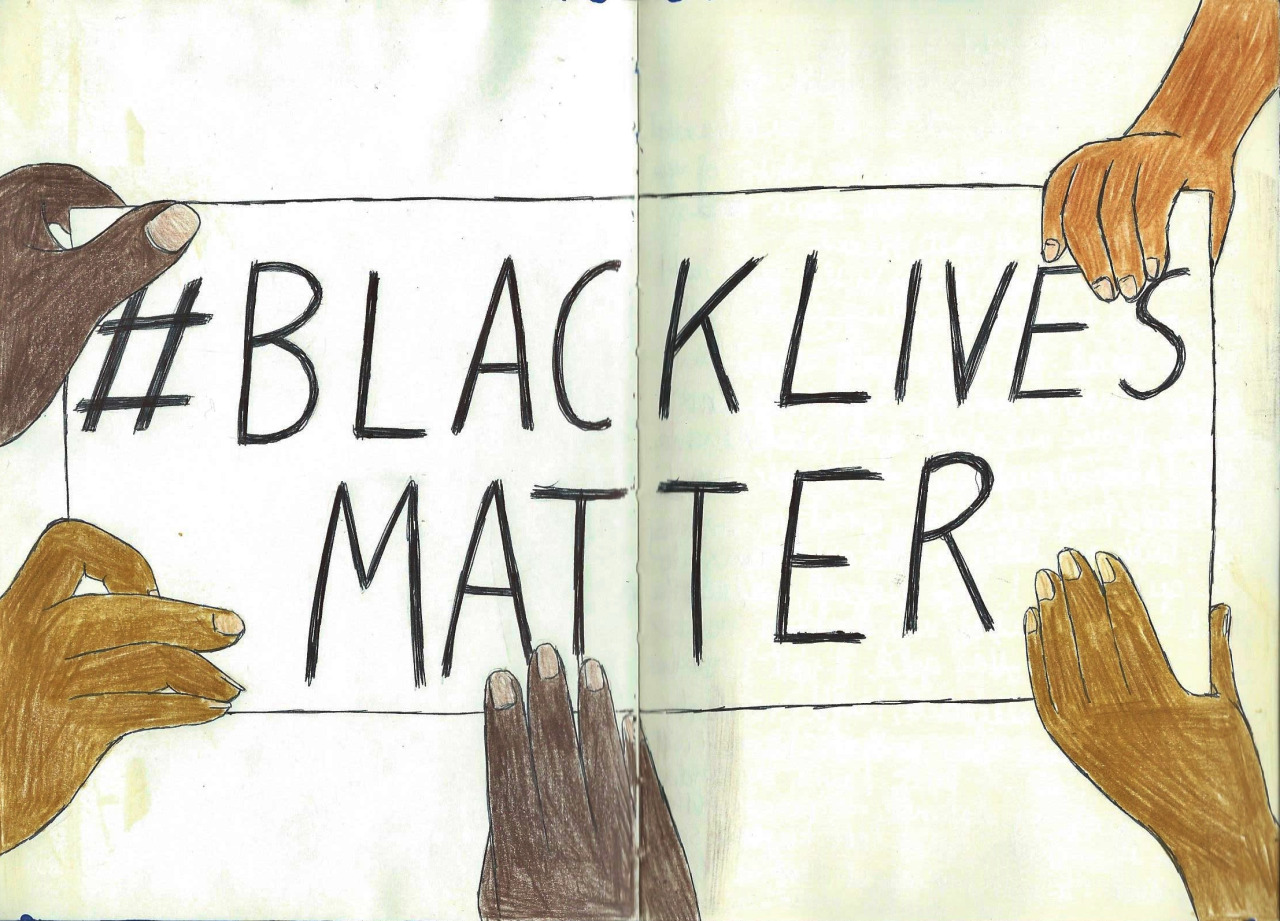 #BLACKLIVES
MATTER